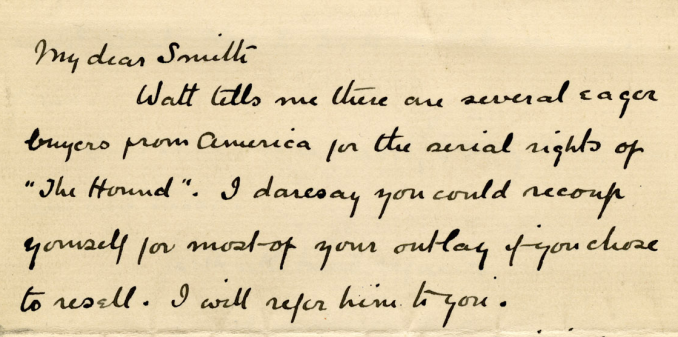 My dear Smith
Watt tells me there are several eager
buyers from America for the serial rights of
"The Hound". I daresay you could recoup
yourself for most of your outlay if you chose
to resell. I will refer him to you.